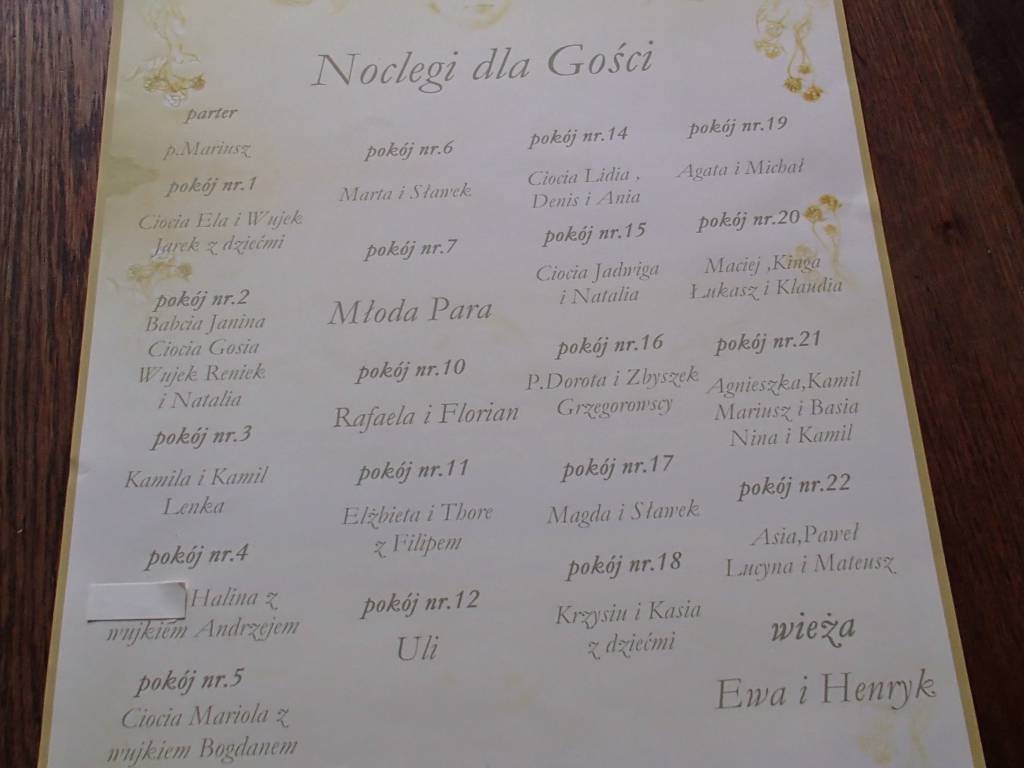 Noclegi dla Gości
parter
p.Mariusz
pokój nr.1
Ciocia Ela i Wujek
Jarek z dziećmi
pokój nr.2
Babcia Janina
Ciocia Gosia
Wujek Reniek
i Natalia
pokój nr.3
Kamila i Kamil
Lenka
pokój nr.4
Halina z
wujkiem Andrzejem
pokój nr.5
Ciocia Mariola z
wujkiem Bogdanem
pokój nr.6
Marta i Sławek
pokój nr.7
Młoda Para
pokój nr.10
Rafaela i Florian
pokój nr.11
Elżbieta i Thore
z Filipem
pokój nr.12
Uli
pokój nr.14
Ciocia Lidia ,
Denis i Ania
pokój nr.15
Ciocia Jadwiga
i Natalia
pokój nr.16
P.Dorota i Zbyszek
Grzegorowscy
pokój nr.17
Magda i Sławek
pokój nr.18
Krzysiu i Kasia
z dziećmi
pokój nr.19
Agata i Michał
pokój nr.20
Maciej ,Kinga
Łukasz i Klaudia
pokój nr.21
Agnieszka,Kamil
Mariusz i Basia
Nina i Kamil
pokój nr.22
Asia,Paweł
Lucyna i Mateusz
wieża
Ewa i Henryk